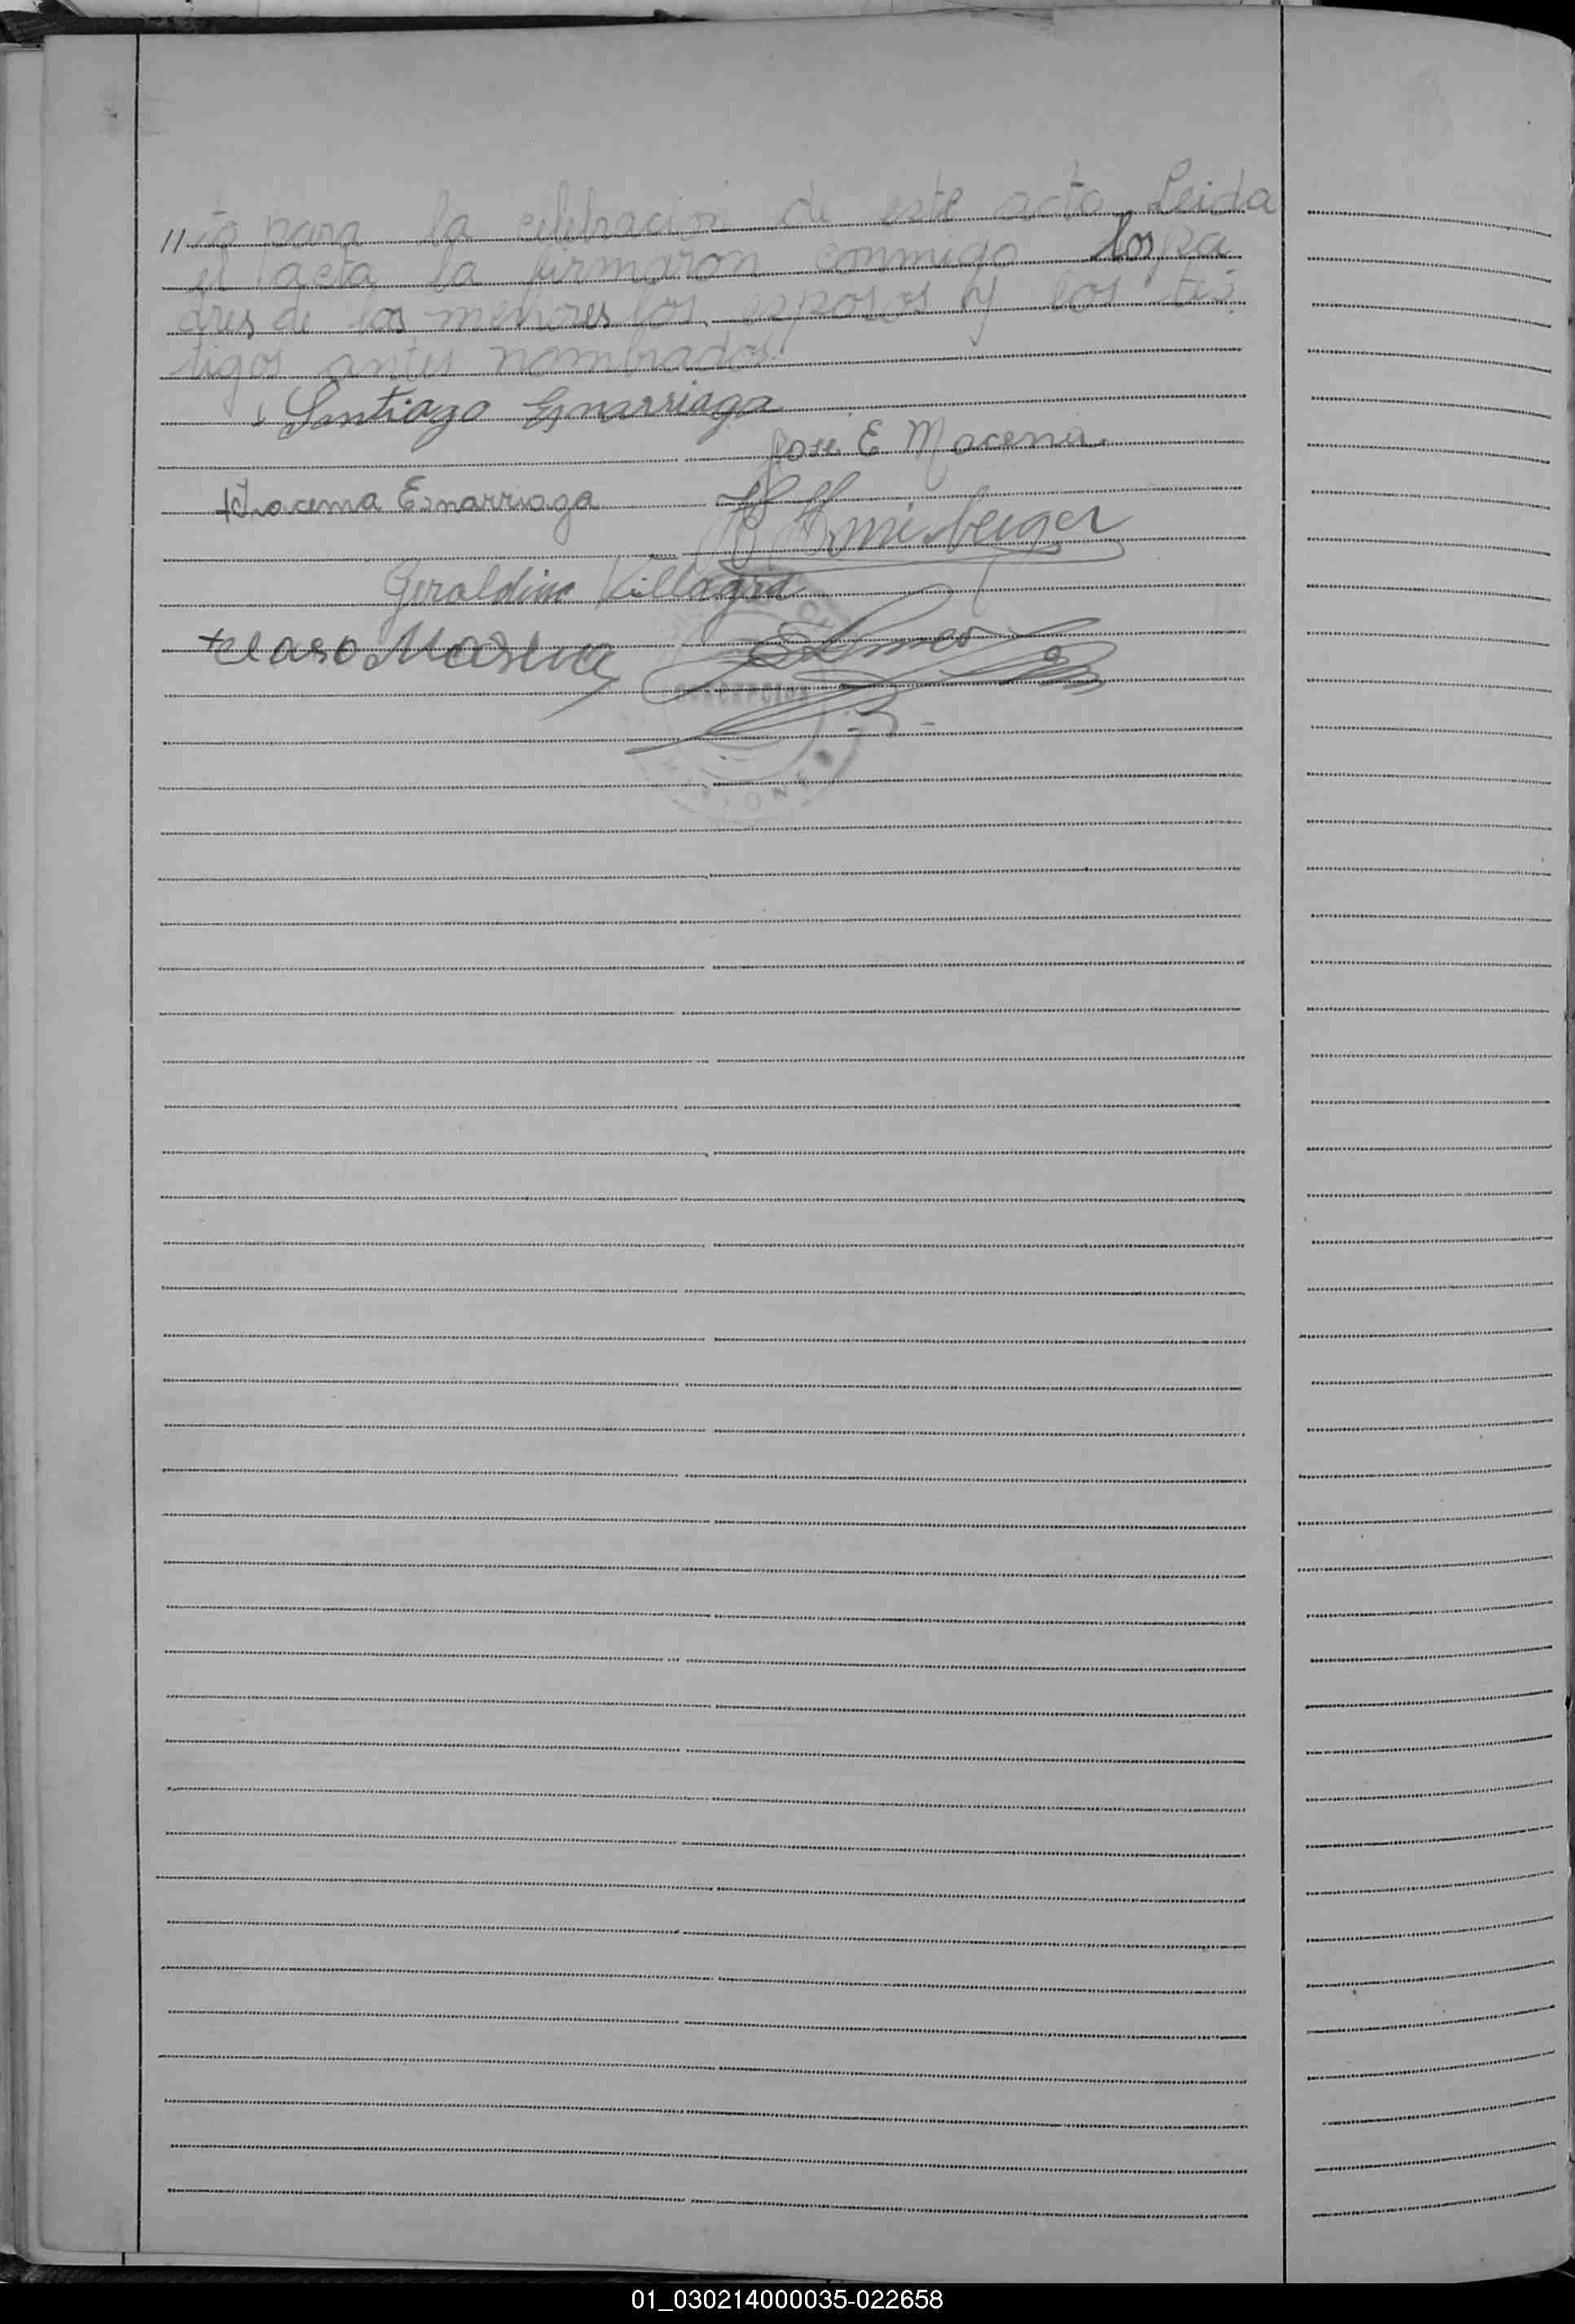 //to para la celebracion de este acto Leida
el acta la firmaron conmigo los pa
dres de los menores los esposos y los tes
tigos antes nombrados.
Santiago Esnarriaga
José E Macena
Iracema Esnarriaga
Geraldino Villagra
CONCEPCION
01_030214000035-022658